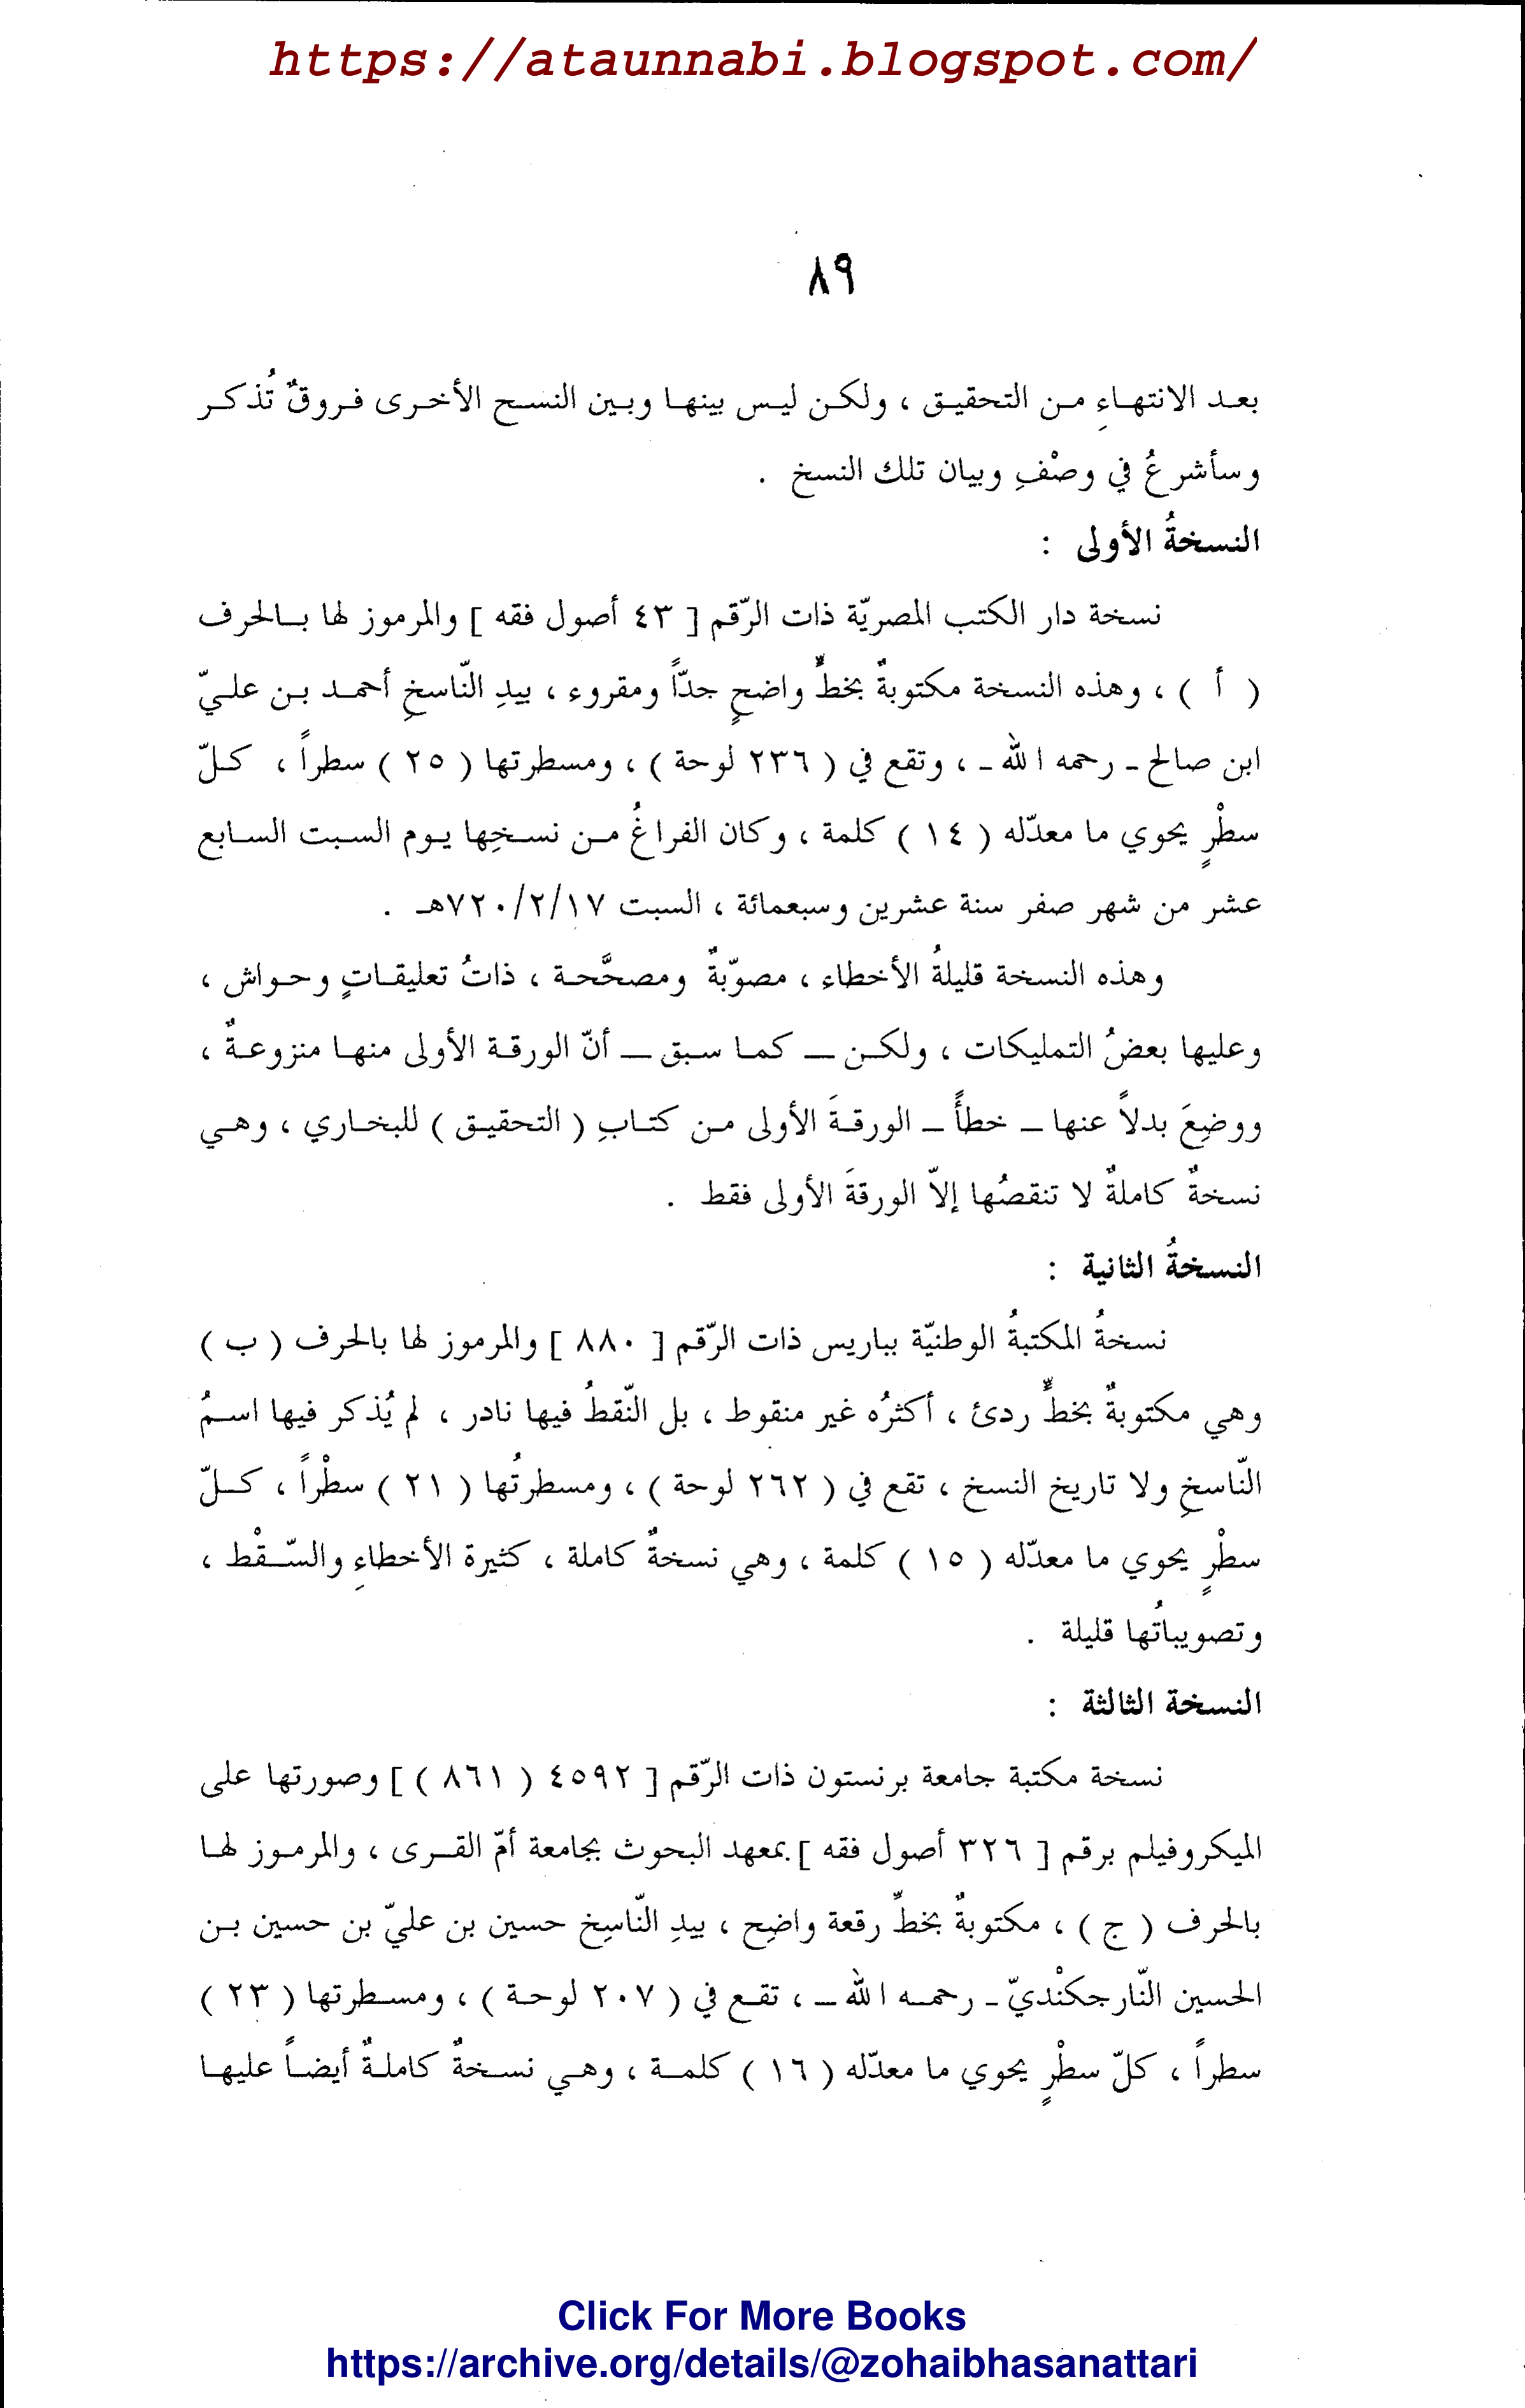 https://ataunnabi.blogspot.com/
٨٩
بعد الانتهاءِ من التحقيق ، ولكن ليس بينها وبين النسخ الأخرى فروقٌ تُذكر
وسأشرعُ في وصْفِ وبيان تلك النسخ .
النسخةُ الأولى :
نسخة دار الكتب المصريّة ذات الرّقم [ ٤٣ أصول فقه ] والمرموز لها بالحرف
( أ ) ، وهذه النسخة مكتوبةٌ بخطٍّ واضحٍ جدّاً ومقروء ، بيدِ النّاسخِ أحمد بن عليّ
ابن صالح - رحمه الله - ، وتقع في ( ٢٣٦ لوحة ) ، ومسطرتها ( ٢٥ ) سطراً ، كلّ
سطْرٍ يحوي ما معدّله ( ١٤ ) كلمة ، وكان الفراغُ من نسخِها يوم السبت السابع
عشر من شهر صفر سنة عشرين وسبعمائة ، السبت ٧٢٠/٢/١٧هـ .
وهذه النسخة قليلةُ الأخطاء ، مصوّبةٌ ومصحَّحة ، ذاتُ تعليقاتٍ وحواش ،
وعليها بعضُ التمليكات ، ولكن – كما سبق – أنّ الورقة الأولى منها منزوعةٌ ،
ووضِعَ بدلاً عنها – خطأً – الورقةَ الأولى من كتابِ ( التحقيق ) للبخاري ، وهي
نسخةٌ كاملةٌ لا تنقصُها إلاّ الورقةَ الأولى فقط .
النسخةُ الثانية :
نسخةُ المكتبةُ الوطنيّة بباريس ذات الرّقم [ ٨٨٠ ] والمرموز لها بالحرف ( ب )
وهي مكتوبةٌ بخطٍّ ردئ ، أكثرُه غير منقوط ، بل النّقطُ فيها نادر ، لم يُذكر فيها اسمُ
النّاسخِ ولا تاريخ النسخ ، تقع في ( ٢٦٢ لوحة ) ، ومسطرتُها ( ٢١ ) سطْراً ، كلّ
سطْرٍ يحوي ما معدّله ( ١٥ ) كلمة ، وهي نسخةٌ كاملة ، كثيرة الأخطاءِ والسّقْط ،
وتصويباتُها قليلة .
النسخة الثالثة :
نسخة مكتبة جامعة برنستون ذات الرّقم [ ٤٥٩٢ ( ٨٦١ ) ] وصورتها على
الميكروفيلم برقم [ ٣٢٦ أصول فقه ] بمعهد البحوث بجامعة أمّ القرى ، والمرموز لها
بالحرف ( ج ) ، مكتوبةٌ بخطٍّ رقعة واضِح ، بيدِ النّاسِخ حسين بن عليّ بن حسين بن
الحسين النّارجكنْديّ - رحمه الله – ، تقع في ( ٢٠٧ لوحة ) ، ومسطرتها ( ٢٣ )
سطراً ، كلّ سطْرٍ يحوي ما معدّله ( ١٦ ) كلمة ، وهي نسخةٌ كاملةٌ أيضاً عليها
Click For More Books
https://archive.org/details/@zohaibhasanattari